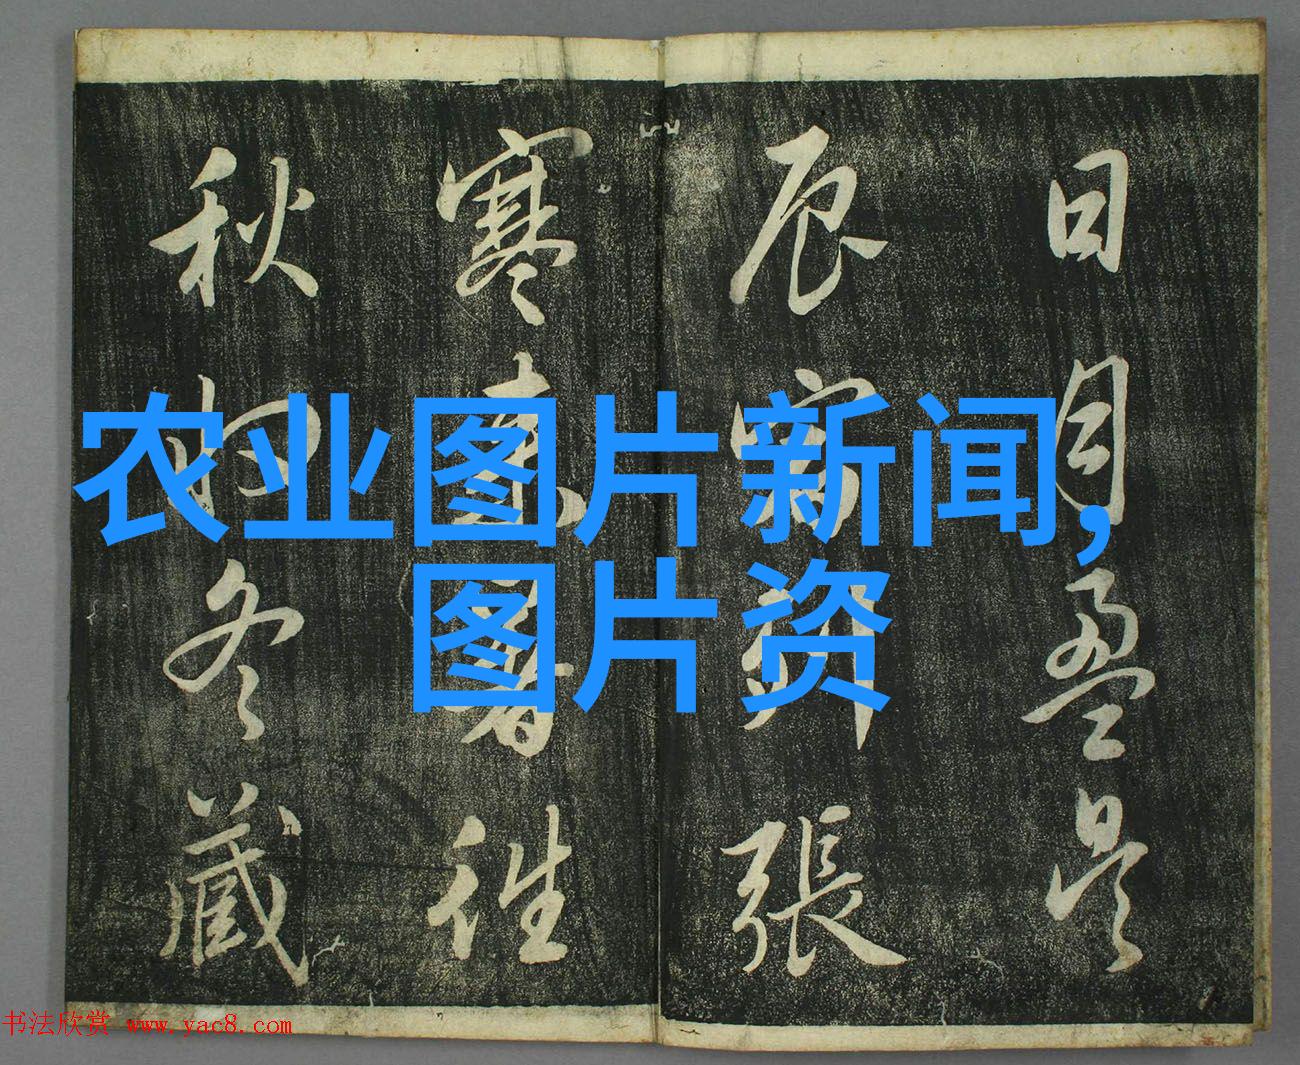 日月盈昃
辰宿列張
寒來暑往
秋收冬藏
农业图片新闻,
图片资
书法欣赏 www.yac8.com